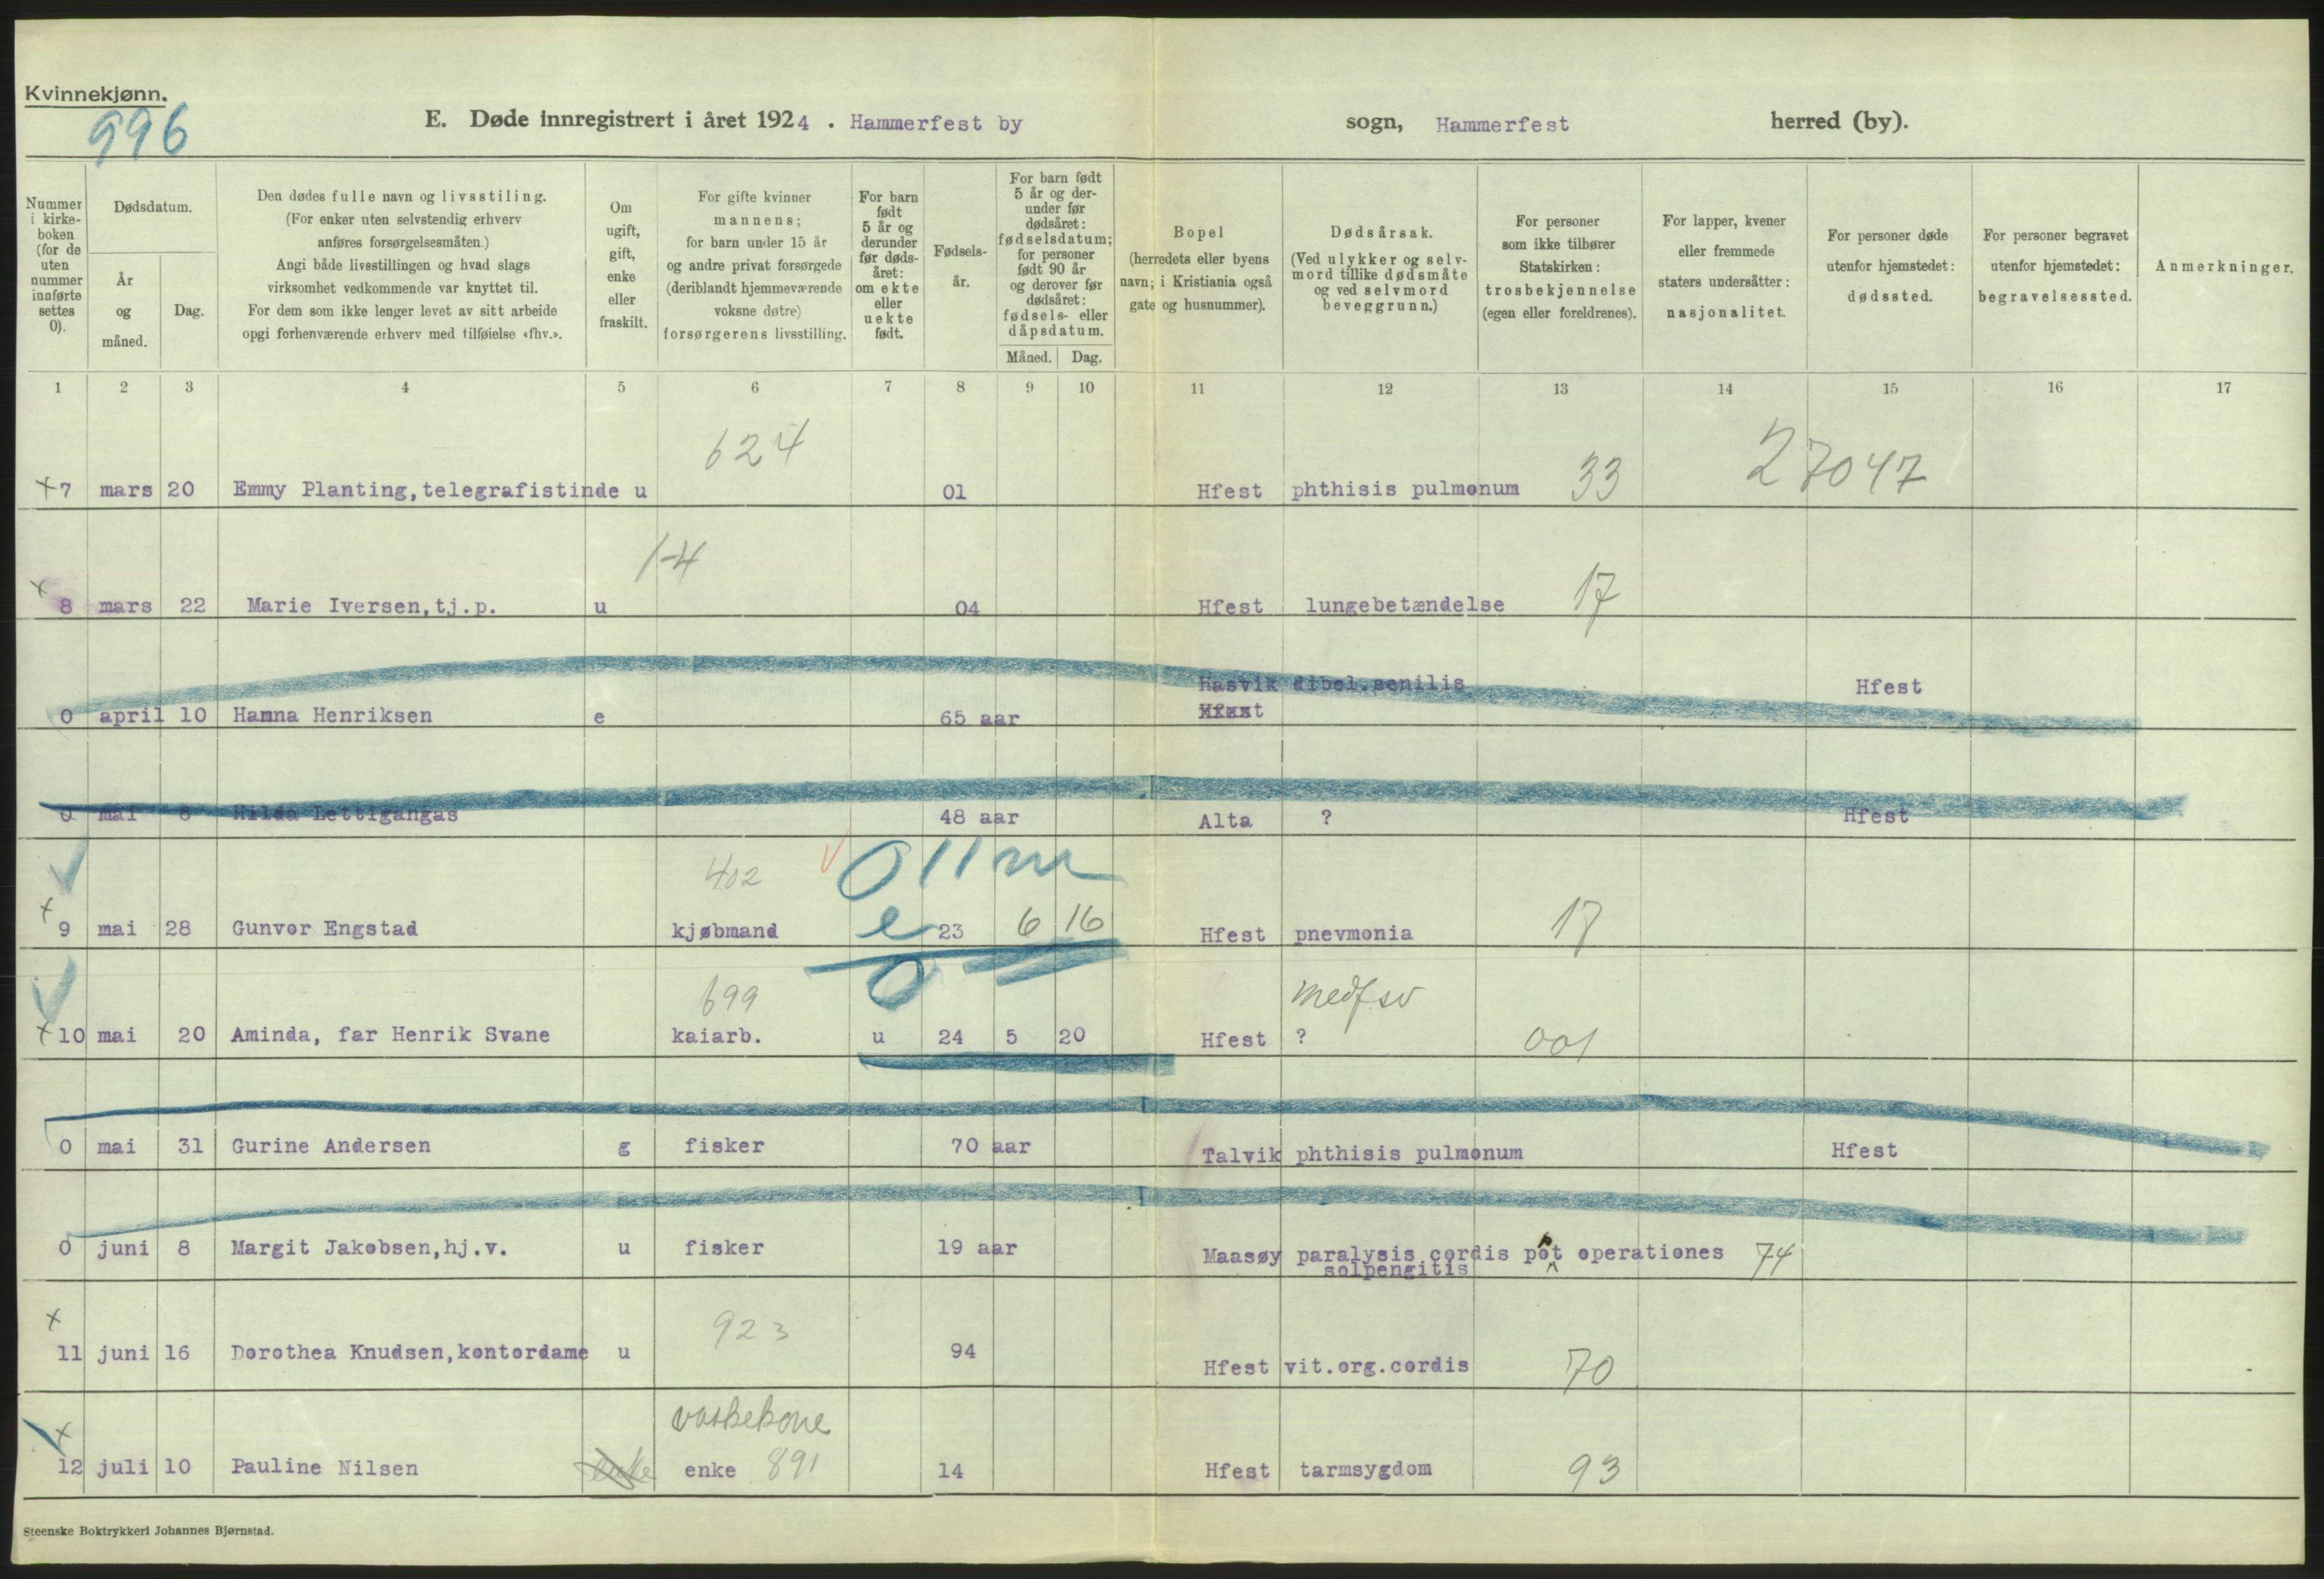 Kvinnekjønn.
996
E. Døde innregistrert i året 1924 . Hammerfest by sogn, Hammerfest herred (by).
Nummer i kirke-boken (for de uten nummer innførte settes 0).
Dødsdatum.
År og måned.
Dag.
Den dødes fulle navn og livsstiling.
(For enker uten selvstendig erhverv
anføres forsørgelsesmåten.)
Angi både livsstillingen og hvad slags
virksomhet vedkommende var knyttet til.
For dem som ikke lenger levet av sitt arbeide
opgi forhenværende erhverv med tilføielse «fhv.».
Om ugift, gift, enke eller fraskilt.
For gifte kvinner
mannens;
for barn under 15 år
og andre privat forsørgede
(deriblandt hjemmeværende
voksne døtre)
forsørgerens livsstilling.
For barn født 5 år og derunder før døds-året: om ekte eller uekte født.
Fødsels-år.
For barn født 5 år og der-under før dødsåret: fødselsdatum; for personer født 90 år og derover før dødsåret: fødsels- eller dåpsdatum.
Måned. Dag.
Bopel
(herredets eller byens
navn; i Kristiania også
gate og husnummer).
Dødsårsak.
(Ved ulykker og selv-
mord tillike dødsmåte
og ved selvmord
beveggrunn.)
For personer
som ikke tilhører
Statskirken:
trosbekjennelse
(egen eller foreldrenes).
For lapper, kvener
eller fremmede
staters undersåtter:
nasjonalitet.
For personer døde
utenfor hjemstedet:
dødssted.
For personer begravet
utenfor hjemstedet:
begravelsessted.
Anmerkninger.
1 2 3 4 5 6 7 8 9 10 11 12 13 14 15 16 17
624
+7 mars 20 Emmy Planting,telegrafistinde u 01 Hfest phthisis pulmonum 33 27047
1-4
x 8 mars 22 Marie Iversen,tj.p. u 04 Hfest lungebetændelse 17
Hasvik dibel.senilis Hfest
0 april 10 Hanna Henriksen e 65 aar
0 mai 6 Hilda Lettigangas 48 aar Alta ? Hfest
402 011 m
+ 9 mai 28 Gunvor Engstad kjøbmand e 23 6 16 Hfest pnevmonia 17
699 0 medf sv
+10 mai 20 Aminda, far Henrik Svane kaiarb. u 24 5 20 Hfest ? 001
0 mai 31 Gurine Andersen g fisker 70 aar Talvik phthisis pulmonum Hfest
0 juni 8 Margit Jakobsen,hj.v. u fisker 19 aar Maasøy paralysis cordis pot operationes 74
solpengitis
x 923
11 juni 16 Dorothea Knudsen,kontordame u 94 Hfest vit.org.cordis 70
x vaskekone
12 juli 10 Pauline Nilsen enke enke 891 14 Hfest tarmsygdom 93
Steenske Boktrykkeri Johannes Bjørnstad.